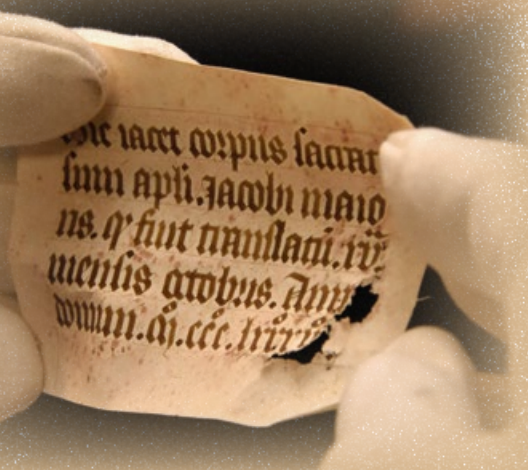 Hic iacet corpus sacrat
sum apli. Jacobi maio
ris. q fuit translatū. xv
mensis otobris. Ann
domini. m. ccc.